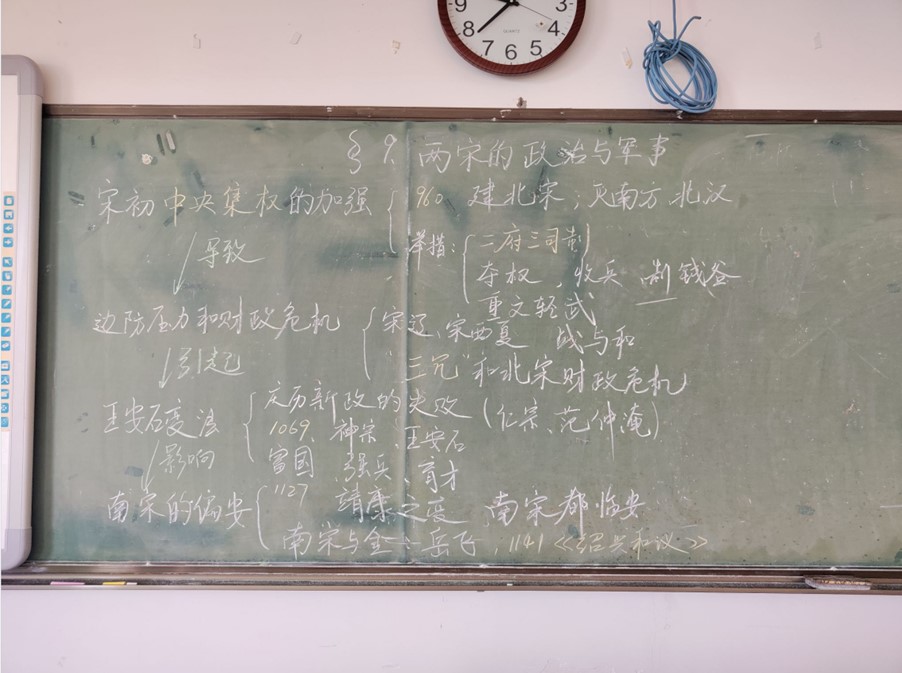 9 8 7 6 5 4 3
QUARTZ
§ 9. 两宋的政治与军事
宋初中央集权的加强 { 960 建北宋；灭南方、北汉
导致
举措：{ 二府三司制
夺权、收兵、制钱谷
重文轻武
边防压力和财政危机 { 宋辽、宋西夏 战与和
引起
"三冗"和北宋财政危机
王安石变法 { 庆历新政的失败 (仁宗、范仲淹)
1069、神宗、王安石
影响
富国、强兵、育才
南宋的偏安 { 1127 靖康之变 南宋都临安
南宋与金：岳飞，1141《绍兴和议》